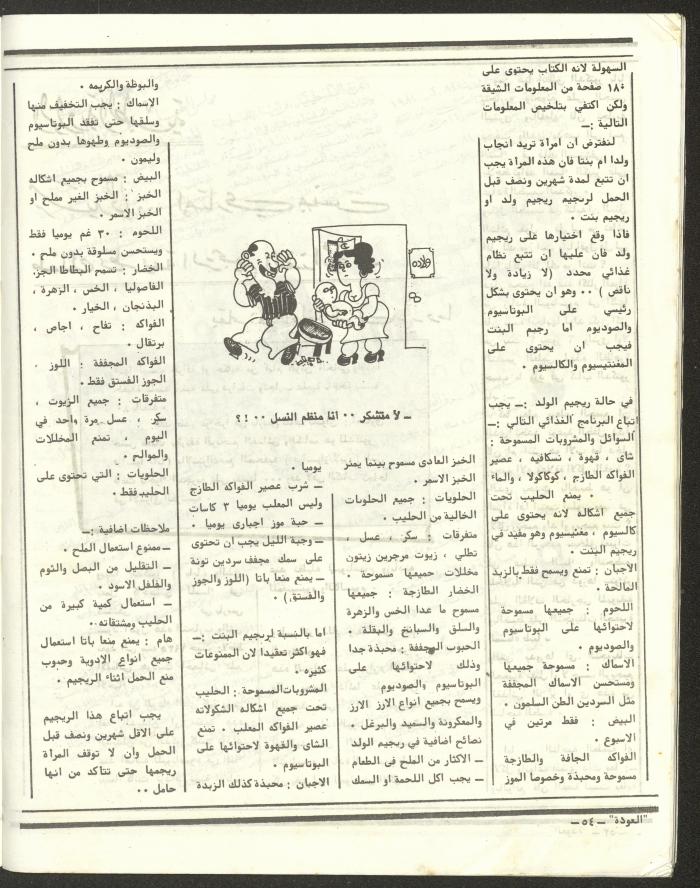 السهولة لانه الكتاب يحتوى على
١٨٠ صفحة من المعلومات الشيقة
ولكن اكتفي بتلخيص المعلومات
التالية :ــ
لنفترض ان امرأة تريد انجاب
ولدا ام بنتا فان هذه المرأة يجب
ان تتبع لمدة شهرين ونصف قبل
الحمل لريجيم ريجيم ولد او
ريجيم بنت ٠
فاذا وقع اختيارها على ريجيم
ولد فان عليها ان تتبع نظام
غذائي محدد (لا زيادة ولا
ناقص ) ٠٠ وهو ان يحتوى بشكل
رئيسي على البوتاسيوم
والصوديوم اما رجيم البنت
فيجب ان يحتوى على
المغنتيسيوم والكالسيوم ٠
في حالة ريجيم الولد :ــ يجب
اتباع البرنامج الغذائي التالي :ــ
السوائل والمشروبات المسموحة :
شاى ، قهوة ، نسكافيه ، عصير
الفواكه الطازج ، كوكاكولا ، والماء
٠ يمنع الحليب تحت
جميع اشكاله لانه يحتوى على
كالسيوم ، مغنتيسيوم وهو مفيد في
ريجيم البنت ٠
الاجبان : تمنع ويسمح فقط بالزبد
المالحة ٠
اللحوم : جميعها مسموحة
لاحتوائها على البوتاسيوم
والصوديوم ٠
الاسماك : مسموحة جميعها
ومستحسن الاسماك المجففة
مثل السردين الطن السلمون ٠
البيض : فقط مرتين في
الاسبوع ٠
الفواكه الجافة والطازجة
مسموحة ومحبذة وخصوصا الموز
ولاده
ــ لأ متتشكر ٠٠ انا منظم النسل ٠٠ !؟
الخبز العادى مسموح بينما يمنع
الخبز الاسمر ٠
الحلويات : جميع الحلويات
الخالية من الحليب ٠
متفرقات : سكر ، عسل ،
تطلي ، زيوت مرجرين زيتون
مخللات جميعها مسموحة ٠
الخضار الطازجة : جميعها
مسموح ما عدا الخس والزهرة
والسلق والسبانخ والبقلة ٠
الحبوب المجففة : محبذة جدا
وذلك لاحتوائها على
البوتاسيوم والصوديوم
ويسمح بجميع انواع الارز الارز
والمعكرونة والسميد والبرغل ٠
نصائح اضافية في ريجيم الولد
ــ الاكثار من الملح في الطعام
ــ يجب اكل اللحمة او السمك
يوميا ٠
ــ شرب عصير الفواكه الطازج
وليس المعلب يوميا ٣ كاسات
ــ حبة موز اجبارى يوميا ٠
ــ وجبة الليل يجب ان تحتوى
على سمك مجفف سردين تونة
ــ يمنع منعا باتا (اللوز والجوز
والفستق) ٠
اما بالنسبة لريجيم البنت :ــ
فهو اكثر تعقيدا لان الممنوعات
كثيره ٠
المشروبات المسموحة : الحليب
تحت جميع اشكاله الشكولاته
عصير الفواكه المعلب ٠ تمنع
الشاى والقهوة لاحتوائها على
البوتاسيوم ٠
الاجبان : محبذة كذلك الزبدة
والبوظة والكريمه ٠
الاسماك : يجب التخفيف منها
وسلقها حتى تفقد البوتاسيوم
والصوديوم وطهوها بدون ملح
وليمون ٠
البيض : مسموح بجميع اشكاله
الخبز : الخبز الغير مملح او
الخبز الاسمر ٠
اللحوم : ٣٠ غم يوميا فقط
ويستحسن مسلوقة بدون ملح ٠
الخضار : تسمح البطاطا الجزر
الفاصوليا ، الخس ، الزهرة ،
البذنجان ، الخيار ٠
الفواكه : تفاح ، اجاص ،
برتقال ٠
الفواكه المجففة : اللوز ،
الجوز الفستق فقط ٠
متفرقات : جميع الزيوت ،
سكر ، عسل مرة واحد في
اليوم ، تمنع المخللات
والموالح ٠
الحلويات : التي تحتوى على
الحليب فقط ٠
ملاحظات اضافية :ــ
ــ ممنوع استعمال الملح ٠
ــ التقليل من البصل والثوم
والفلفل الاسود ٠
ــ استعمال كمية كبيرة من
الحليب ومشتقاته ٠
هام : يمنع منعا باتا استعمال
جميع انواع الادوية وحبوب
منع الحمل اثناء الريجيم ٠
يجب اتباع هذا الريجيم
على الاقل شهرين ونصف قبل
الحمل وان لا توقف المرأة
ريجمها حتى تتأكد من انها
حامل ٠٠
"العودة" ــ ٥٤ ــ